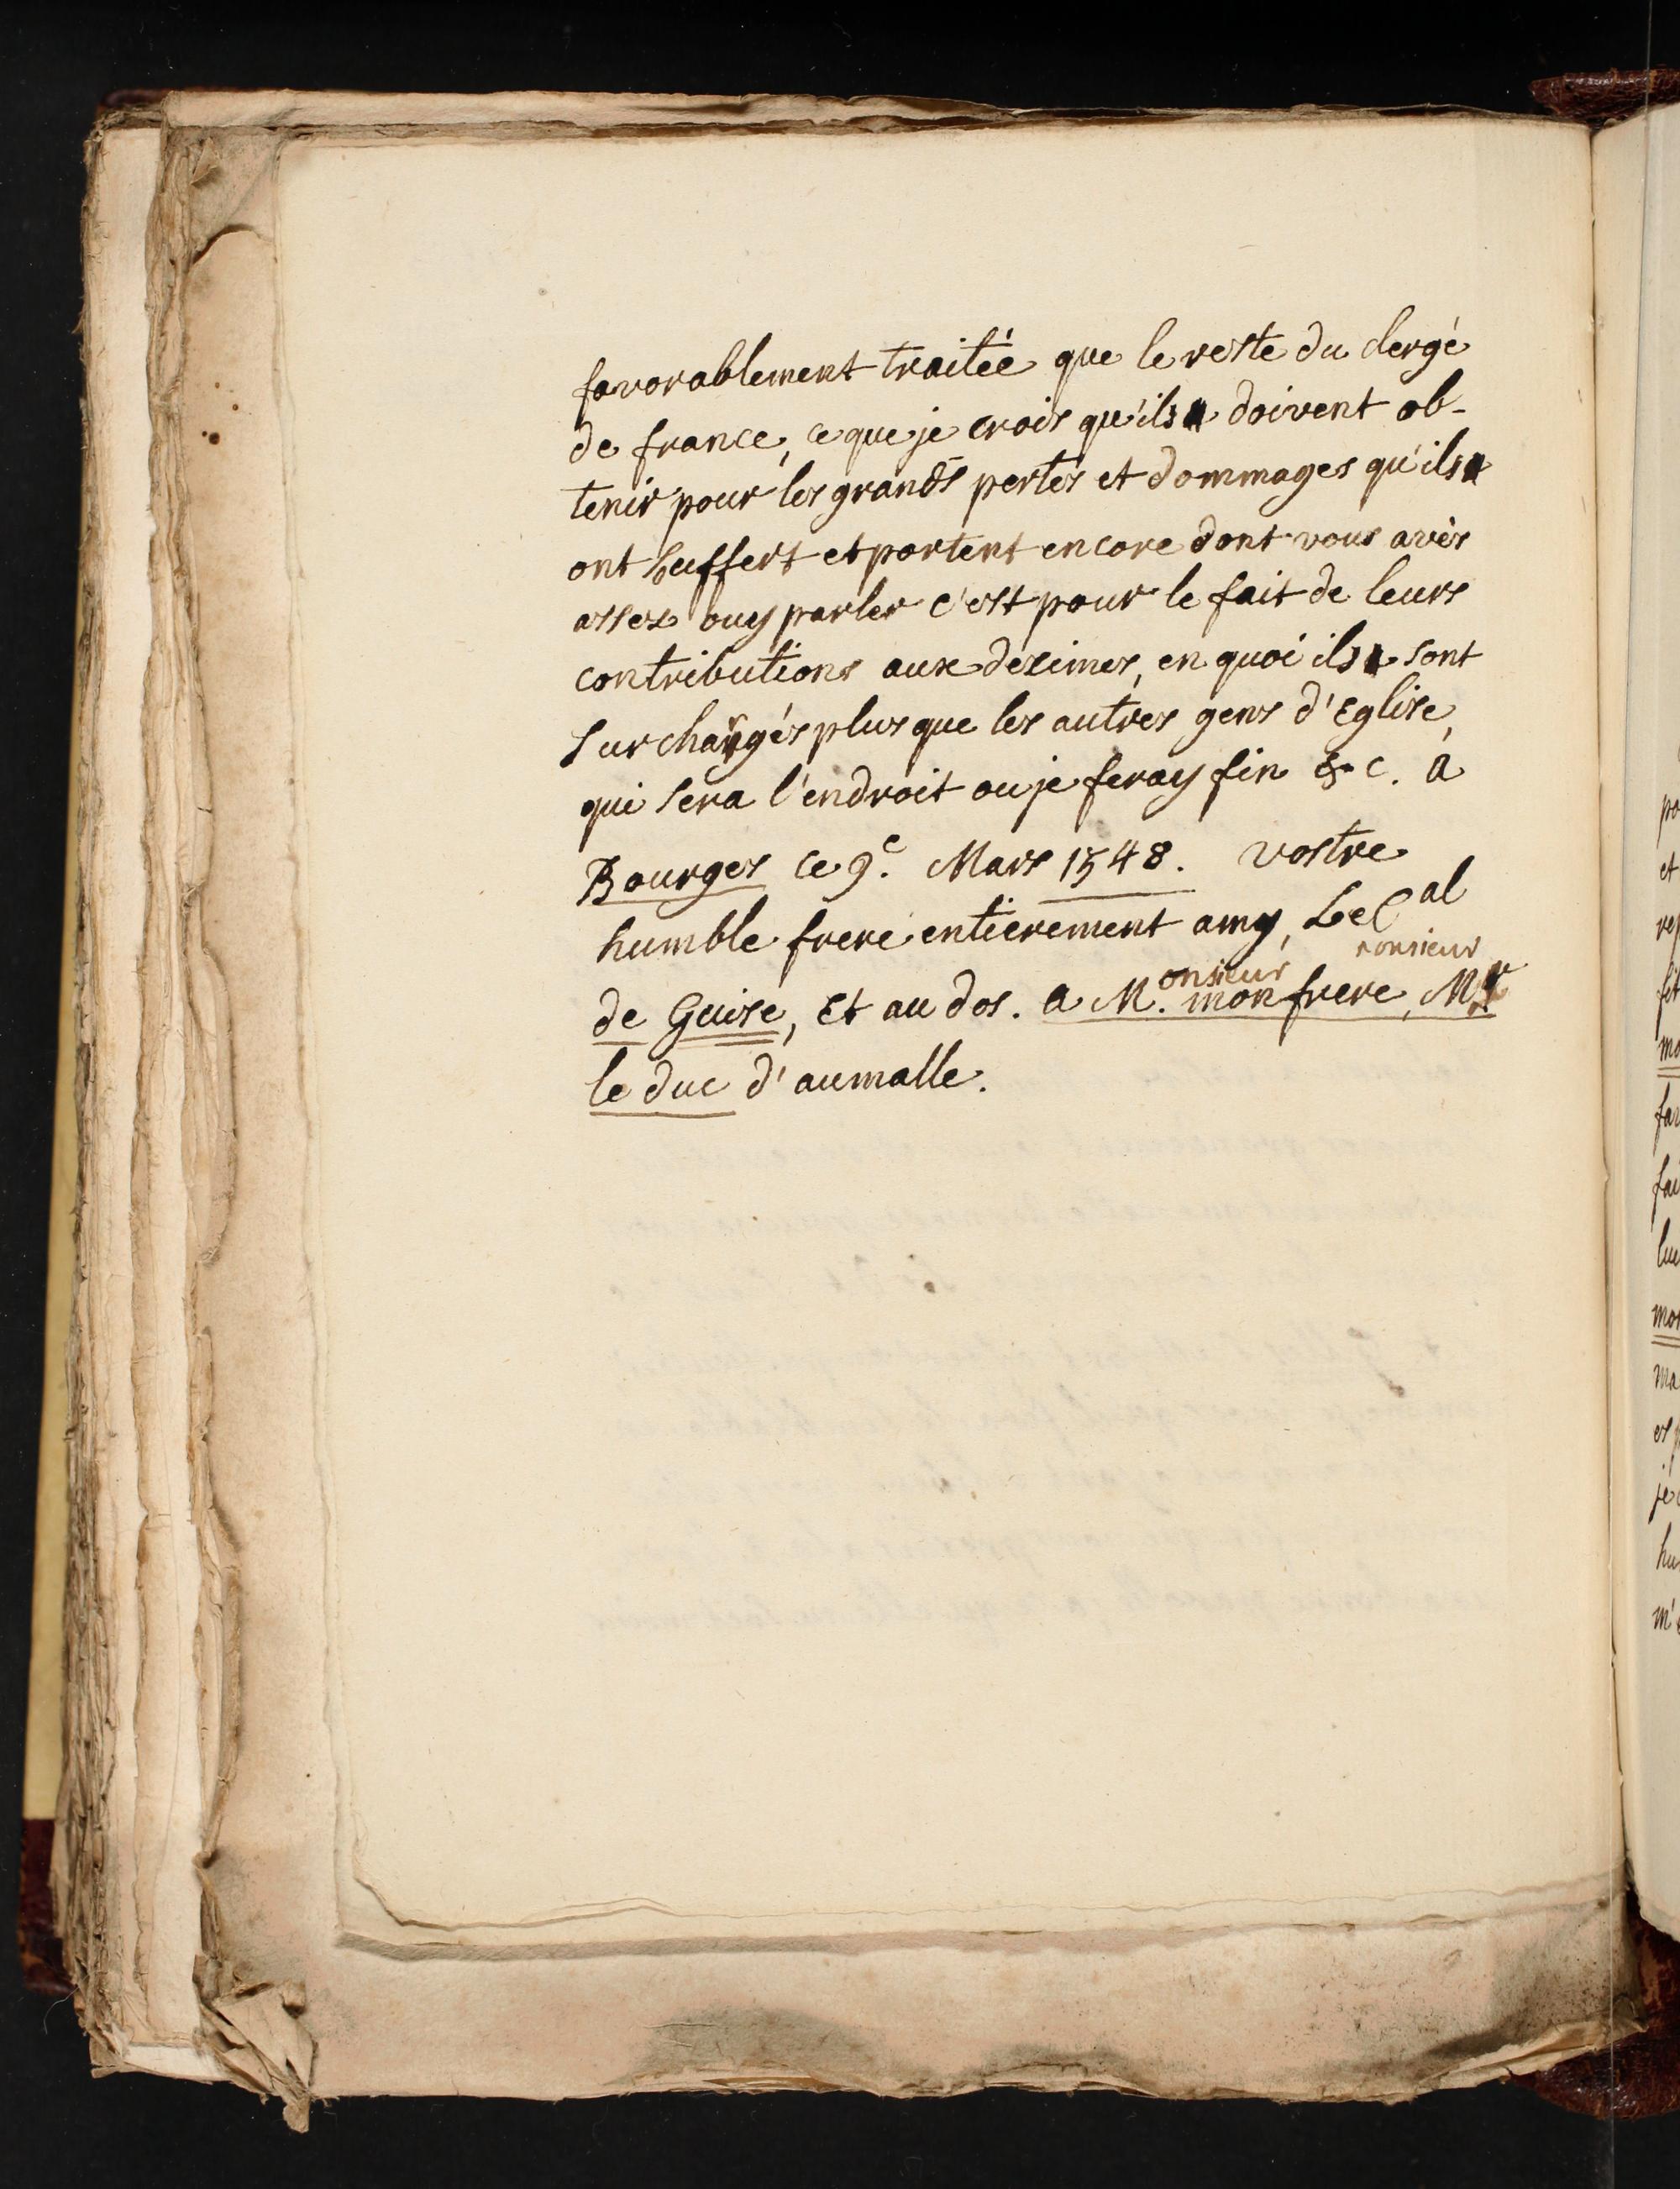 favorablement traitée que le reste du clergé
de france, ce que je crois qu'ils doivent ob-
tenir pour les grands pertes et dommages qu'ils
ont suffert et portent encore dont vous avés
assez ouy parler c'est pour le fait de leurs
contributions aux dezimes, en quoi ils sont
surchargés plus que les autres gens d'Eglise,
qui sera l'endroit ou je feray fin &c. à
Bourges ce 9e. Mars 1548. vostre
humble frere entierement amy, Le Cal
de Guise, Et au dos. a Monsieur mon frere, Monsieur
le duc d'aumalle.